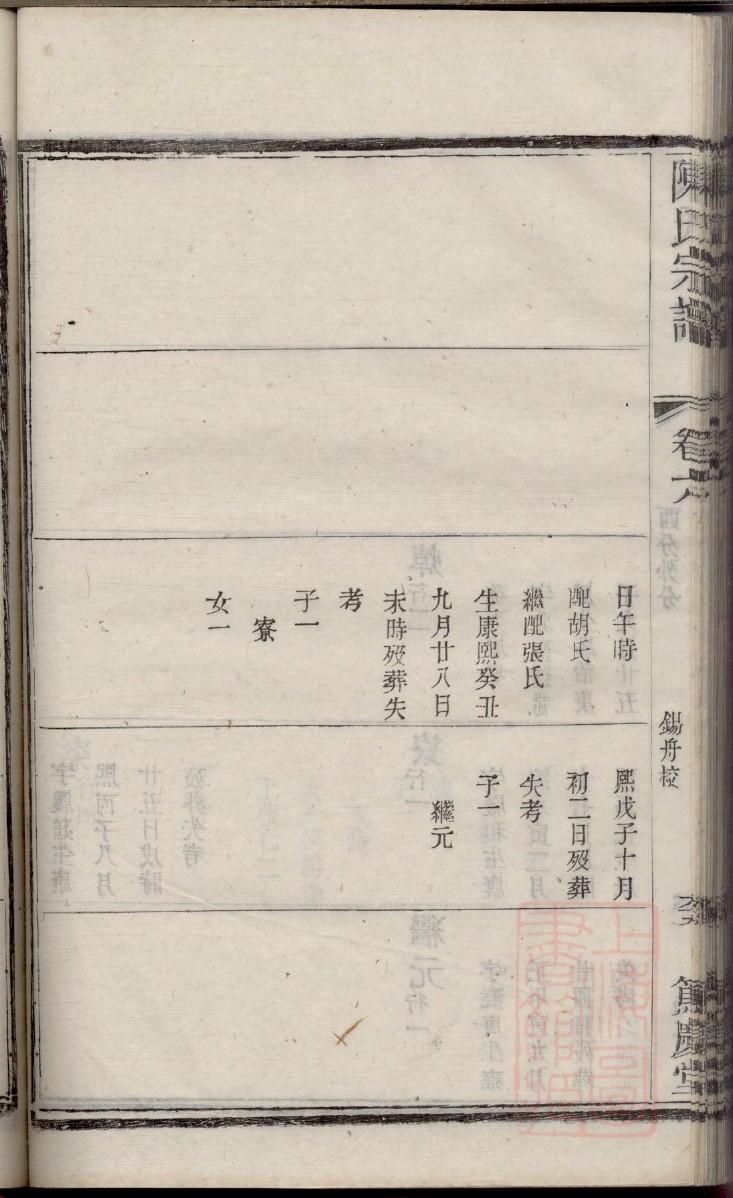 陳氏宗譜
卷六
錫舟校
篤慶堂
日午時
配胡氏
繼配張氏
生康熙癸丑
九月廿八日
未時歿葬失
考
子一
寮
女一
熙戊子十月
初二日歿葬
失考
子一
繼元